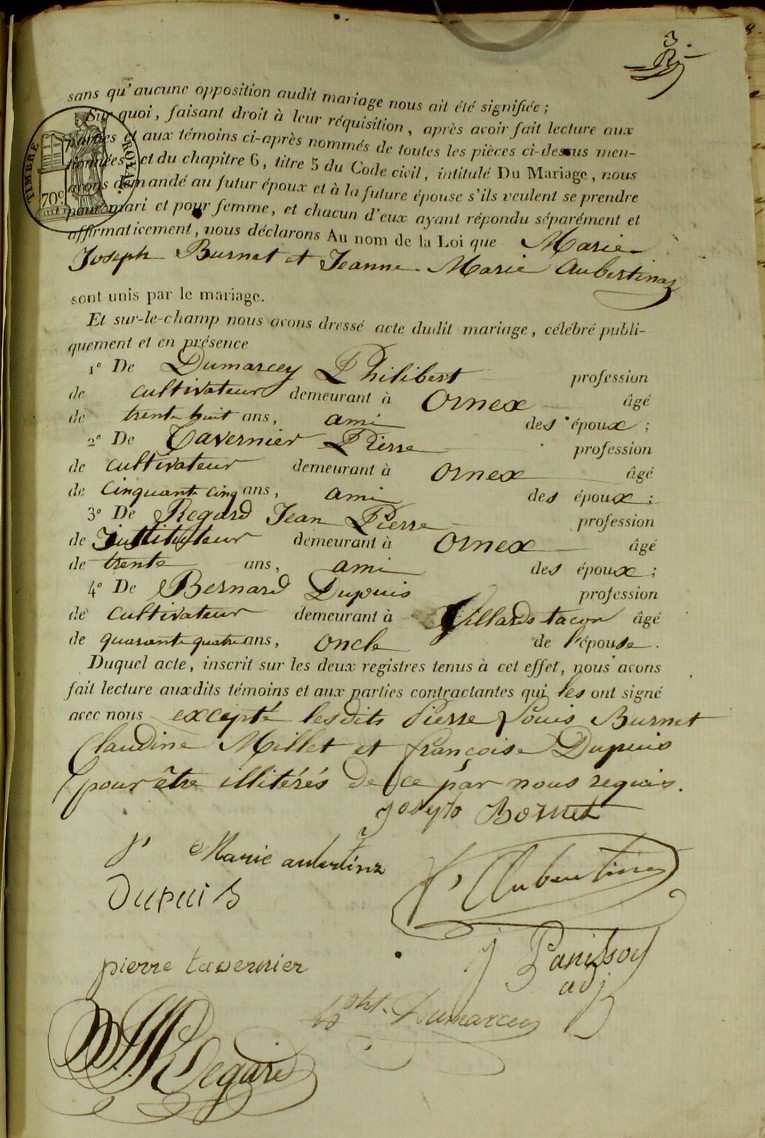 3.
sans qu'aucune opposition audit mariage nous ait été signifiée ;
Sur quoi, faisant droit à leur réquisition, après avoir fait lecture aux
parties et aux témoins ci-après nommés de toutes les pièces ci-dessus men-
tionnées, et du chapitre 6, titre 5 du Code civil, intitulé Du Mariage, nous
avons demandé au futur époux et à la future épouse s'ils veulent se prendre
pour mari et pour femme, et chacun d'eux ayant répondu séparément et
affirmativement, nous déclarons Au nom de la Loi que Marie
Joseph Burnet et Jeanne Marie Aubertinaz
TIMBRE ROYAL
70 c
sont unis par le mariage.
Et sur-le-champ nous avons dressé acte dudit mariage, célébré publi-
quement et en présence
1º De Dumarcey Philibert profession
de cultivateur demeurant à Ornex âgé
de trente huit ans, ami des époux ;
2º De Tavernier Pierre profession
de cultivateur demeurant à Ornex âgé
de cinquante cinq ans, ami des époux ;
3º De Regard Jean Pierre profession
de Instituteur demeurant à Ornex âgé
de trente ans, ami des époux ;
4º De Bernard Dupuis profession
de cultivateur demeurant à âgé
de quarante quatre ans, oncle de l'épouse.
Duquel acte, inscrit sur les deux registres tenus à cet effet, nous avons
fait lecture auxdits témoins et aux parties contractantes qui les ont signé
avec nous excepté lesdits Pierre Louis Burnet
Claudine Millet et françoise Dupuis
pour être illitérés de ce par nous requis.
Joseph Bornet
jn Marie aubertinz
Dupuis
Aubertin
pierre tavernier
J Panissod
adj
pht. Dumarcey
Regard